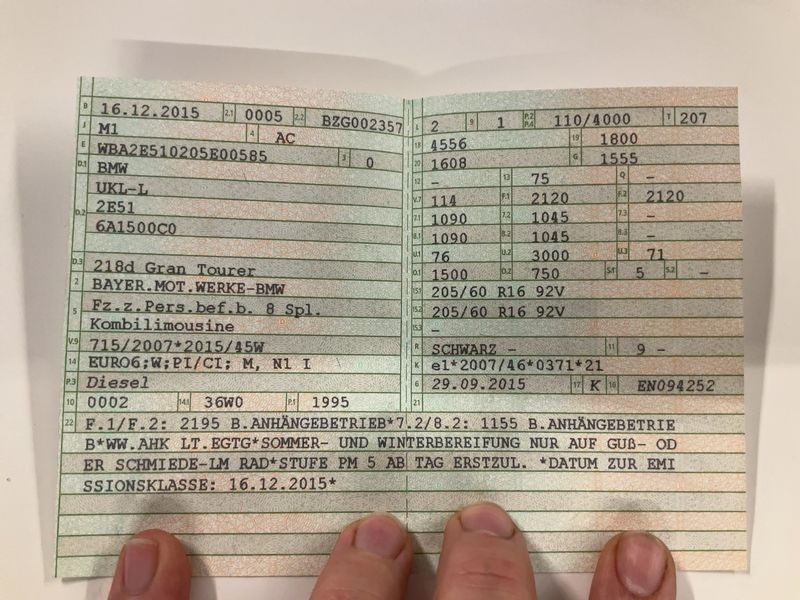 B 16.12.2015 2.1 0005 2.2 BZG002357
J M1 4 AC
E WBA2E510205E00585 3 0
D.1 BMW
UKL-L
D.2 2E51
6A1500C0
D.3 218d Gran Tourer
2 BAYER.MOT.WERKE-BMW
5 Fz.z.Pers.bef.b. 8 Spl.
Kombilimousine
V.9 715/2007*2015/45W
14 EURO6;W;PI/CI; M, N1 I
P.3 Diesel
10 0002 14.1 36W0 P.1 1995
L 2 9 1 P.2 P.4 110/4000 T 207
18 4556 19 1800
20 1608 G 1555
12 – 13 75 Q –
V.7 114 F.1 2120 F.2 2120
7.1 1090 7.2 1045 7.3 –
8.1 1090 8.2 1045 8.3 –
U.1 76 U.2 3000 U.3 71
O.1 1500 O.2 750 S.1 5 S.2 –
15.1 205/60 R16 92V
15.2 205/60 R16 92V
15.3 –
R SCHWARZ – 11 9 –
K e1*2007/46*0371*21
6 29.09.2015 17 K 16 EN094252
21
22 F.1/F.2: 2195 B.ANHÄNGEBETRIEB*7.2/8.2: 1155 B.ANHÄNGEBETRIE
B*WW.AHK LT.EGTG*SOMMER- UND WINTERBEREIFUNG NUR AUF GUß- OD
ER SCHMIEDE-LM RAD*STUFE PM 5 AB TAG ERSTZUL. *DATUM ZUR EMI
SSIONSKLASSE: 16.12.2015*